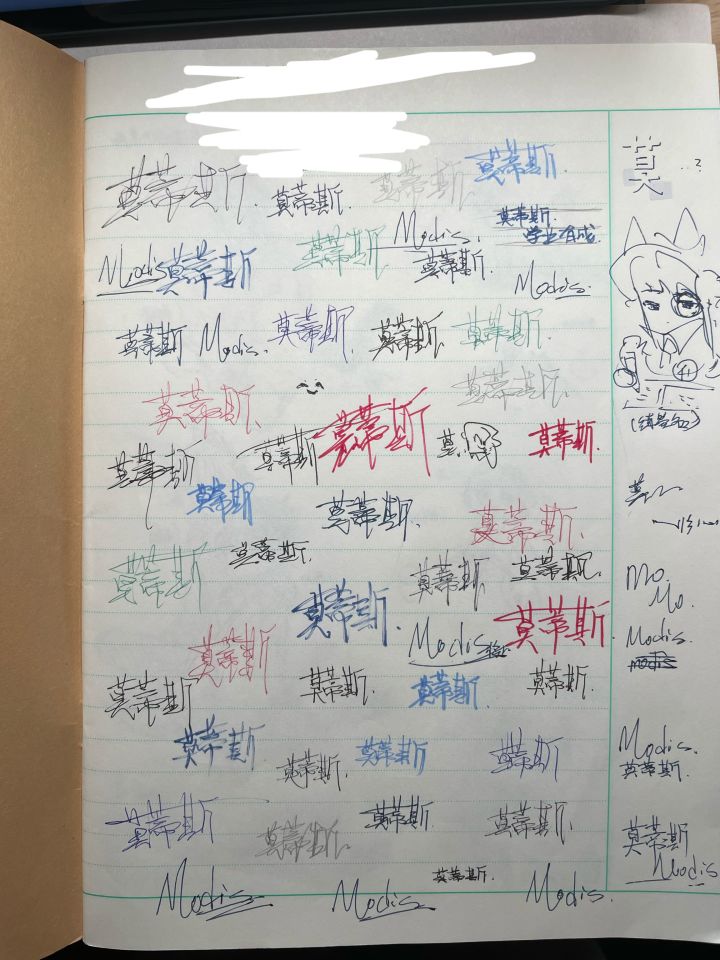 莫
莫蒂斯.
莫蒂斯.
莫蒂斯.
莫蒂斯.
莫蒂斯.
学业有成.
Modis莫蒂斯
莫蒂斯
Modis.
莫蒂斯.
Modis.
莫蒂斯
Modis.
莫蒂斯.
莫蒂斯.
莫蒂斯.
莫蒂斯.
莫蒂斯.
莫蒂斯
莫蒂斯
莫蒂斯
莫
莫蒂斯.
莫蒂斯
莫蒂斯.
莫蒂斯.
莫蒂斯
莫蒂斯.
莫蒂斯
莫蒂斯.
Mo.
Mo.
莫蒂斯.
Modis
莫蒂斯.
Modis.
modis
莫蒂斯
莫蒂斯
莫蒂斯.
莫蒂斯.
莫蒂斯.
莫蒂斯
莫蒂斯.
莫蒂斯
莫蒂斯
Modis.
莫蒂斯.
莫蒂斯
莫蒂斯.
莫蒂斯
莫蒂斯.
莫蒂斯
Modis
Modis
Modis
莫蒂斯.
Modis.